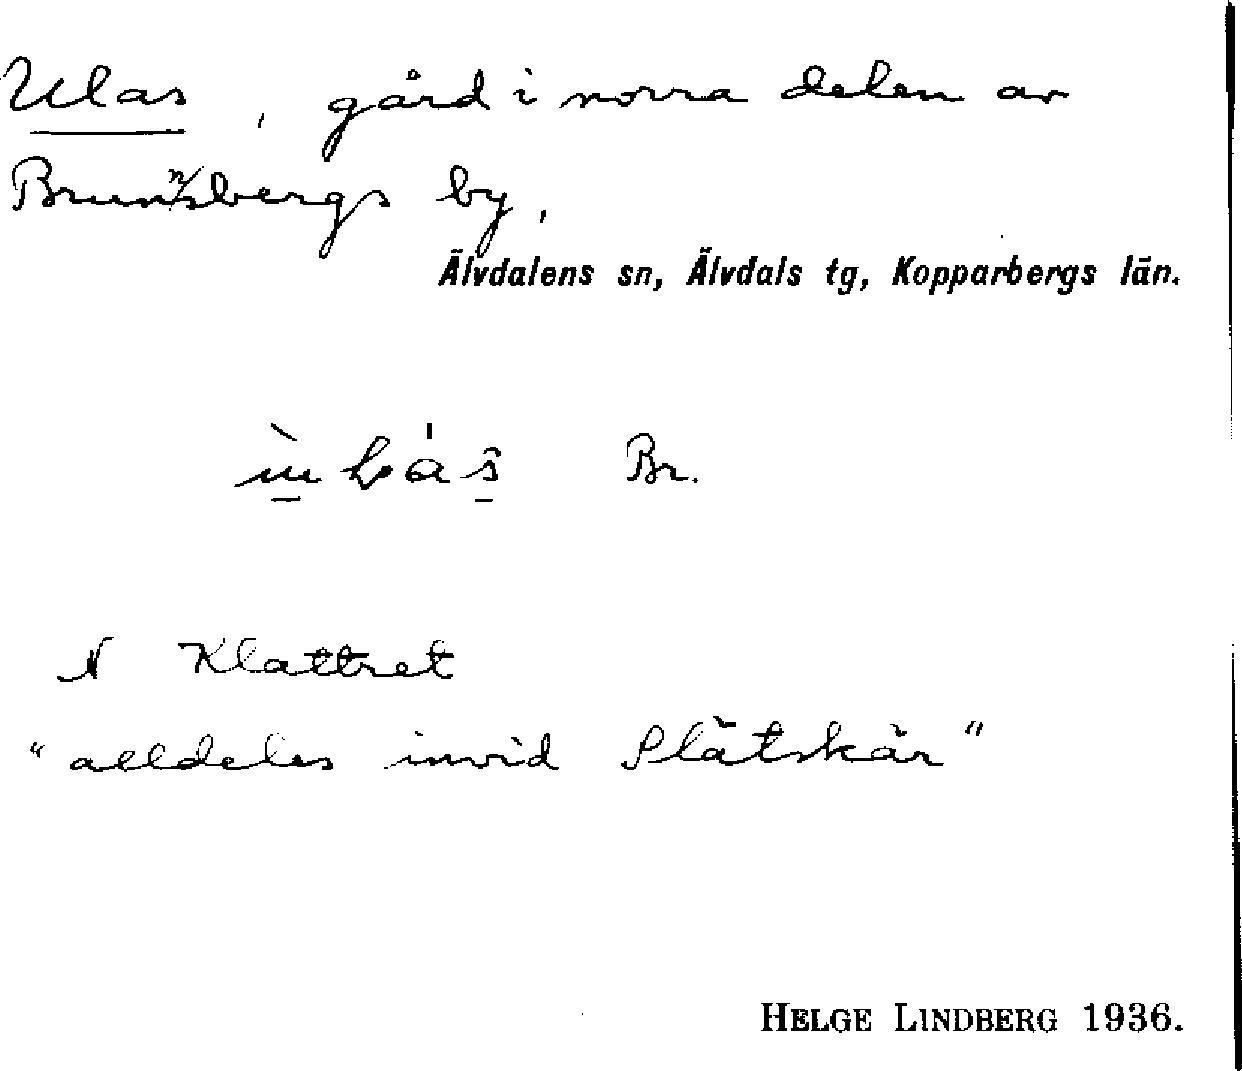 Ulas, gård i norra delen av
Brunnsbergs by,
Älvdalens sn, Älvdals tg, Kopparbergs län.
Br.
N Klattret
"alldeles invid Slåtskär"
HELGE LINDBERG 1936.